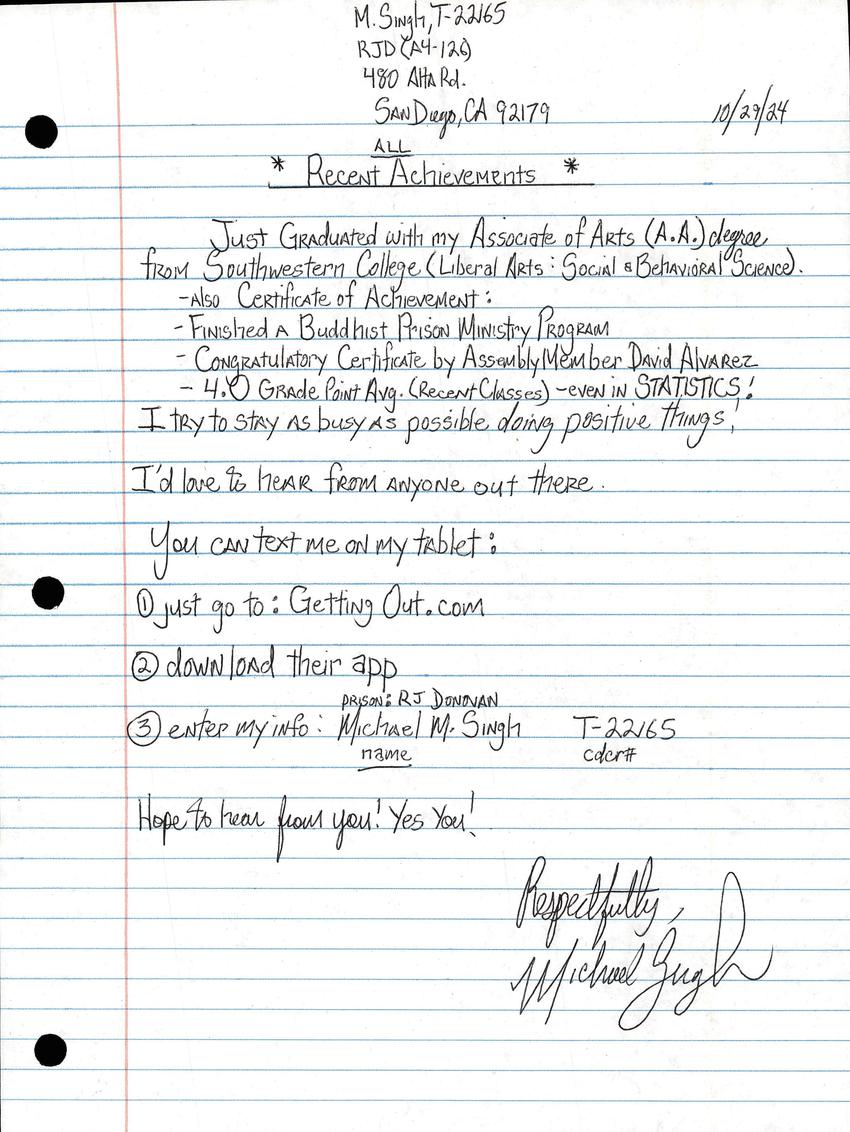 M. Singh, T-22165
RJD (A4-126)
480 Alta Rd.
San Diego, CA 92179
10/29/24
ALL
* Recent Achievements *
Just Graduated with my Associate of Arts (A.A.) degree
from Southwestern College (Liberal Arts: Social & Behavioral Science).
- Also Certificate of Achievement:
- Finished a Buddhist Prison Ministry Program
- Congratulatory Certificate by Assembly Member David Alvarez
- 4.0 Grade Point Avg. (Recent Classes) - even in STATISTICS!
I try to stay as busy as possible doing positive things!
I'd love to hear from anyone out there.
You can text me on my tablet:
① just go to: Getting Out.com
② download their app
prison: RJ Donovan
③ enter my info: Michael M. Singh T-22165
name cdcr#
Hope to hear from you! Yes You!
Respectfully,
Michael Singh